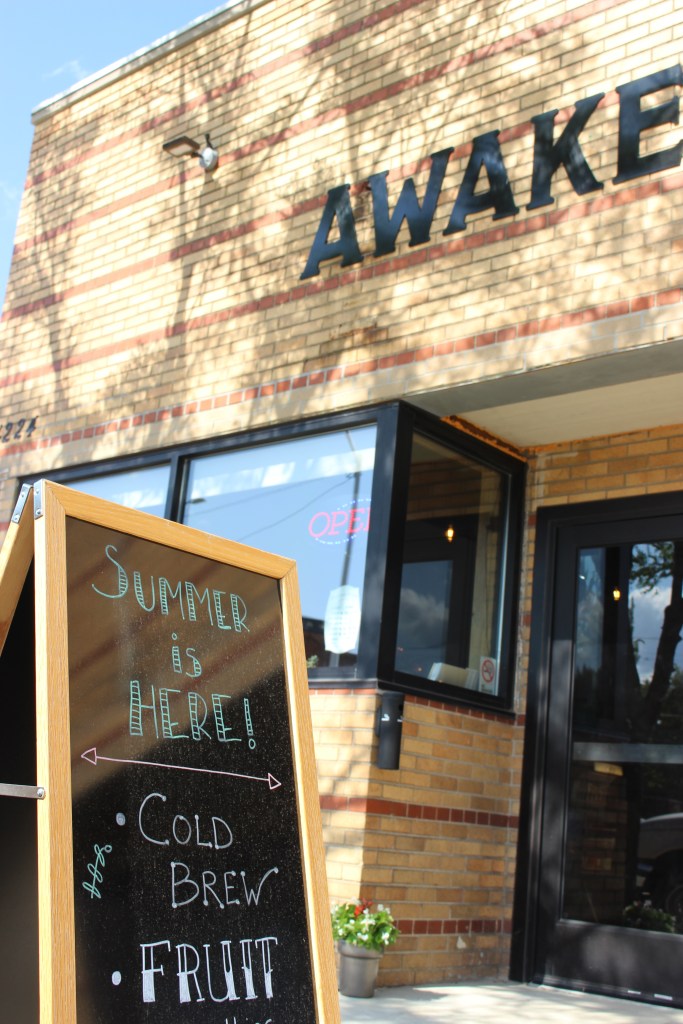 AWAKE
224
OPEN
SUMMER
is
HERE!
• COLD
BREW
• FRUIT